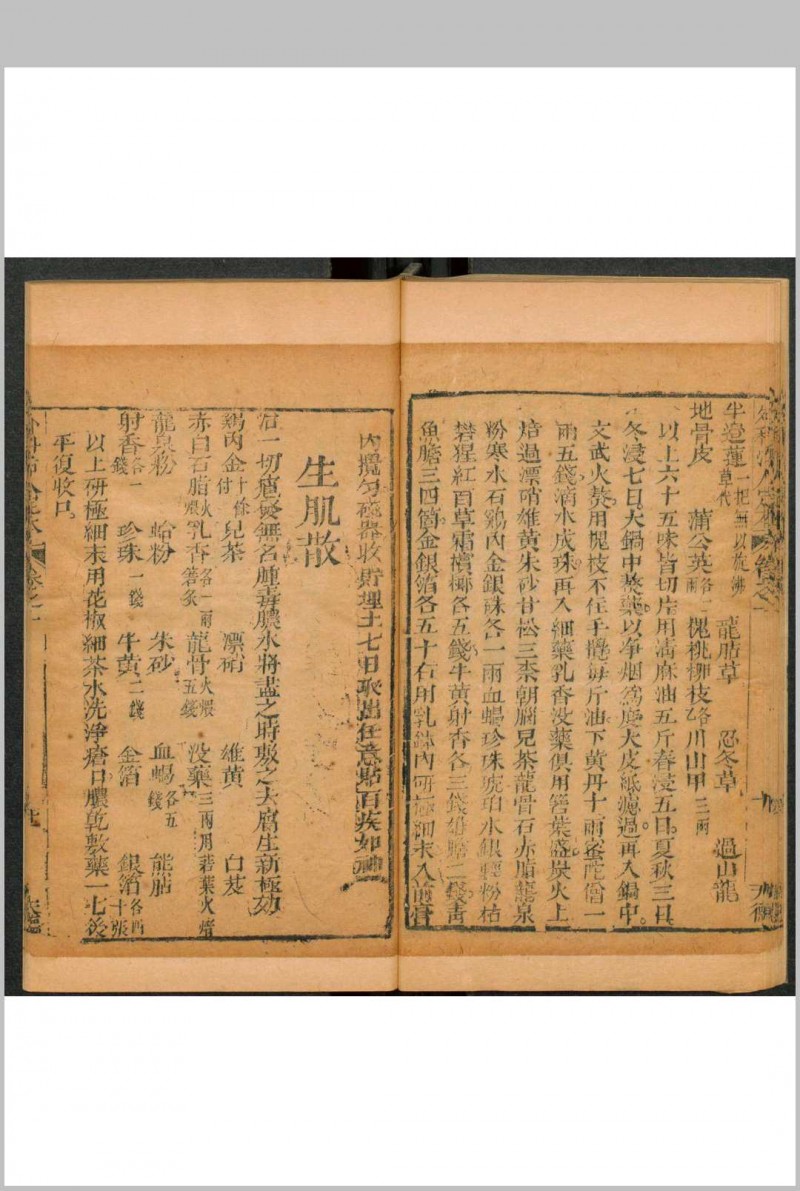 半邊蓮一把無以旋沸草代 龍胆草 忍冬草 過山龍
地骨皮 蒲公英各一兩 槐桃柳枝各 川山甲三兩
以上六十五味皆切片用淸麻油五斤春浸五日夏秋三日
冬浸七日大鍋中熬藥以净烟爲度大皮紙濾過再入鍋中
文武火熬用槐枝不住手攪每斤油下黄丹十兩蜜陀僧一
兩五錢滴水成珠再入細藥乳香没藥俱用箬葉盛炭火上
焙過漂硝雄黄朱砂甘松三柰朝腦兒茶龍骨石赤脂龍泉
粉寒水石鷄內金銀硃各一兩血蝎珍珠琥珀水銀輕粉枯
礬猩紅百草霜檳榔各五錢牛黄射香各三錢雄胆二錢靑
魚膽三四箇金銀箔各五十右用乳鉢內研極細末入前膏
內攪勻磁器收貯埋土七日取出任意貼百疾如神
生肌散
治一切瘡瘍無名腫毒膿水將盡之時敷之去腐生新極効
鷄內金十餘付 兒茶 漂硝 雄黄 白芨
赤白石脂火煨 乳香各一兩箬炙 龍骨火煨五錢 没藥三兩用若葉火焙
龍泉粉 蛤粉 朱砂 血蝎各五錢 熊胆
射香各一錢 珍珠一錢 牛黄二錢 金箔 銀箔各四十張
以上研極細末用花椒細茶水洗淨瘡口膿乾敷藥一七後
平復收口